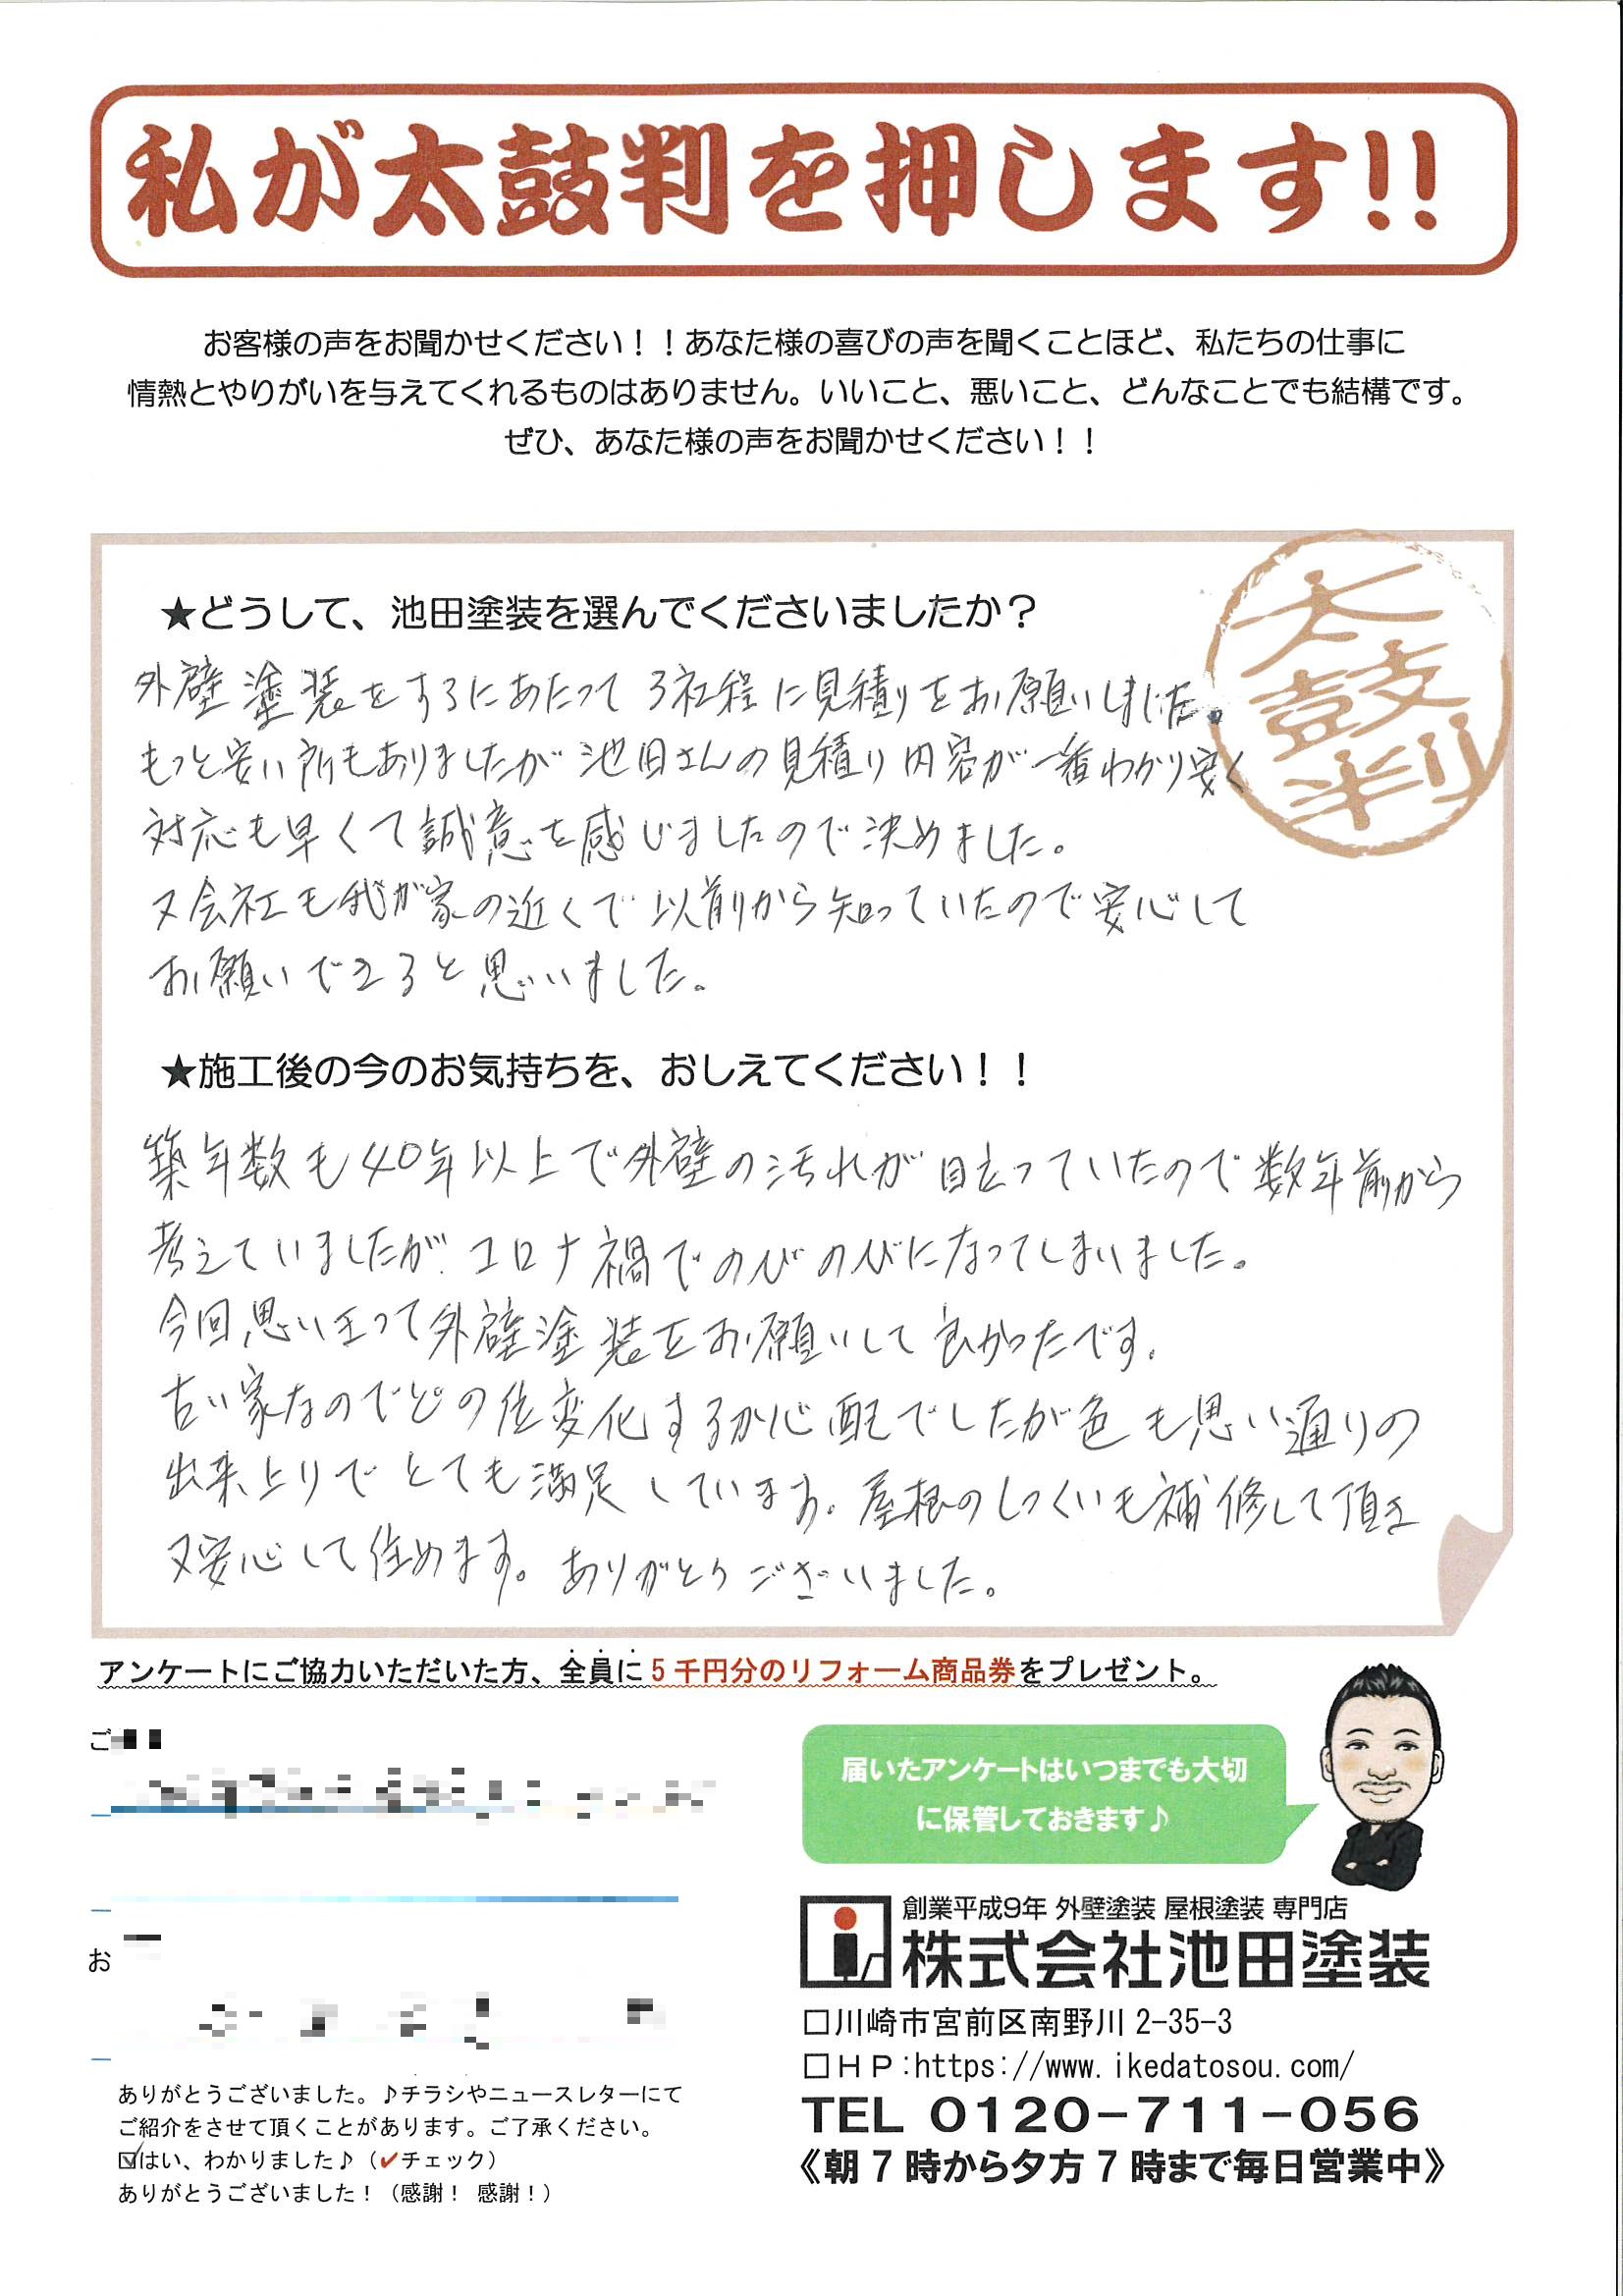 私が太鼓判を押します!!
お客様の声をお聞かせください！！あなた様の喜びの声を聞くことほど、私たちの仕事に
情熱とやりがいを与えてくれるものはありません。いいこと、悪いこと、どんなことでも結構です。
ぜひ、あなた様の声をお聞かせください！！
太鼓判
★どうして、池田塗装を選んでくださいましたか？
外壁塗装をするにあたって3社程に見積りをお願いしました。
もっと安い所もありましたが池田さんの見積り内容が一番わかり安く
対応も早くて誠意を感じましたので決めました。
又会社も我が家の近くで以前から知っていたので安心して
お願いできると思いました。
★施工後の今のお気持ちを、おしえてください！！
築年数も40年以上で外壁の汚れが目立っていたので数年前から
考えていましたが、コロナ禍でのびのびになってしまいました。
今回思い立って外壁塗装をお願いして良かったです。
古い家なのでどの位変化するか心配でしたが色も思い通りの
出来上りでとても満足しています。屋根のしっくいも補修して頂き
又安心して住めます。ありがとうございました。
アンケートにご協力いただいた方、全員に5千円分のリフォーム商品券をプレゼント。
ご
お
届いたアンケートはいつまでも大切
に保管しておきます♪
創業平成9年 外壁塗装 屋根塗装 専門店
株式会社池田塗装
□川崎市宮前区南野川 2-35-3
□ＨＰ:https://www.ikedatosou.com/
TEL 0120-711-056
《朝7時から夕方7時まで毎日営業中》
ありがとうございました。♪チラシやニュースレターにて
ご紹介をさせて頂くことがあります。ご了承ください。
☑はい、わかりました♪（✓チェック）
ありがとうございました！（感謝！ 感謝！）